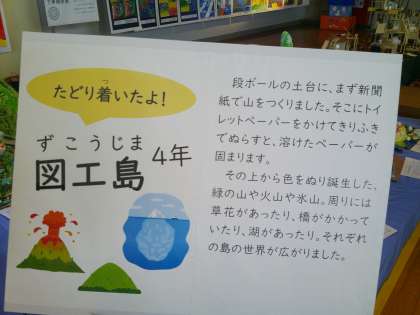 たどり着いたよ!
ずこうじま
図工島 4年
段ボールの土台に、まず新聞
紙で山をつくりました。そこにトイ
レットペーパーをかけてきりふき
でぬらすと、溶けたペーパーが
固まります。
その上から色をぬり誕生した、
緑の山や火山や氷山。周りには
草花があったり、橋がかかって
いたり、湖があったり。それぞれ
の島の世界が広がりました。